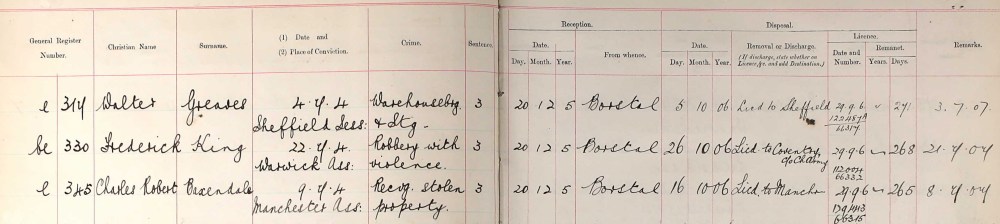 Reception. Disposal.
General Register Number. Christian Name Surname. (1) Date and (2) Place of Conviction. Crime. Sentence. Date. Day. Month. Year. From whence. Date. Day. Month. Year. Removal or Discharge. (If discharge, state whether on Licence, &c. and add Destination.) Licence. Date and Number. Remanet. Years. Days. Remarks.
e 314 Walter Greaves 4.7.4 Warehousebrg. 3 20 12 5 Borstal 5 10 06 Licd to Sheffield 29.9.6 271 3.7.07.
Sheffield Sess: & Stg.
be 330 Frederick King 22.7.4 Robbery with 3 20 12 5 Borstal 26 10 06 Licd. to Coventry, 29.9.6 268 21.7.07
Warwick Ass: violence.
e 345 Charles Robert Baxendale 9.7.4 Recvg. stolen 3 20 12 5 Borstal 16 10 06 Licd. to Manchr 29.9.6 265 8.7.07
Manchester Ass: property.
66315